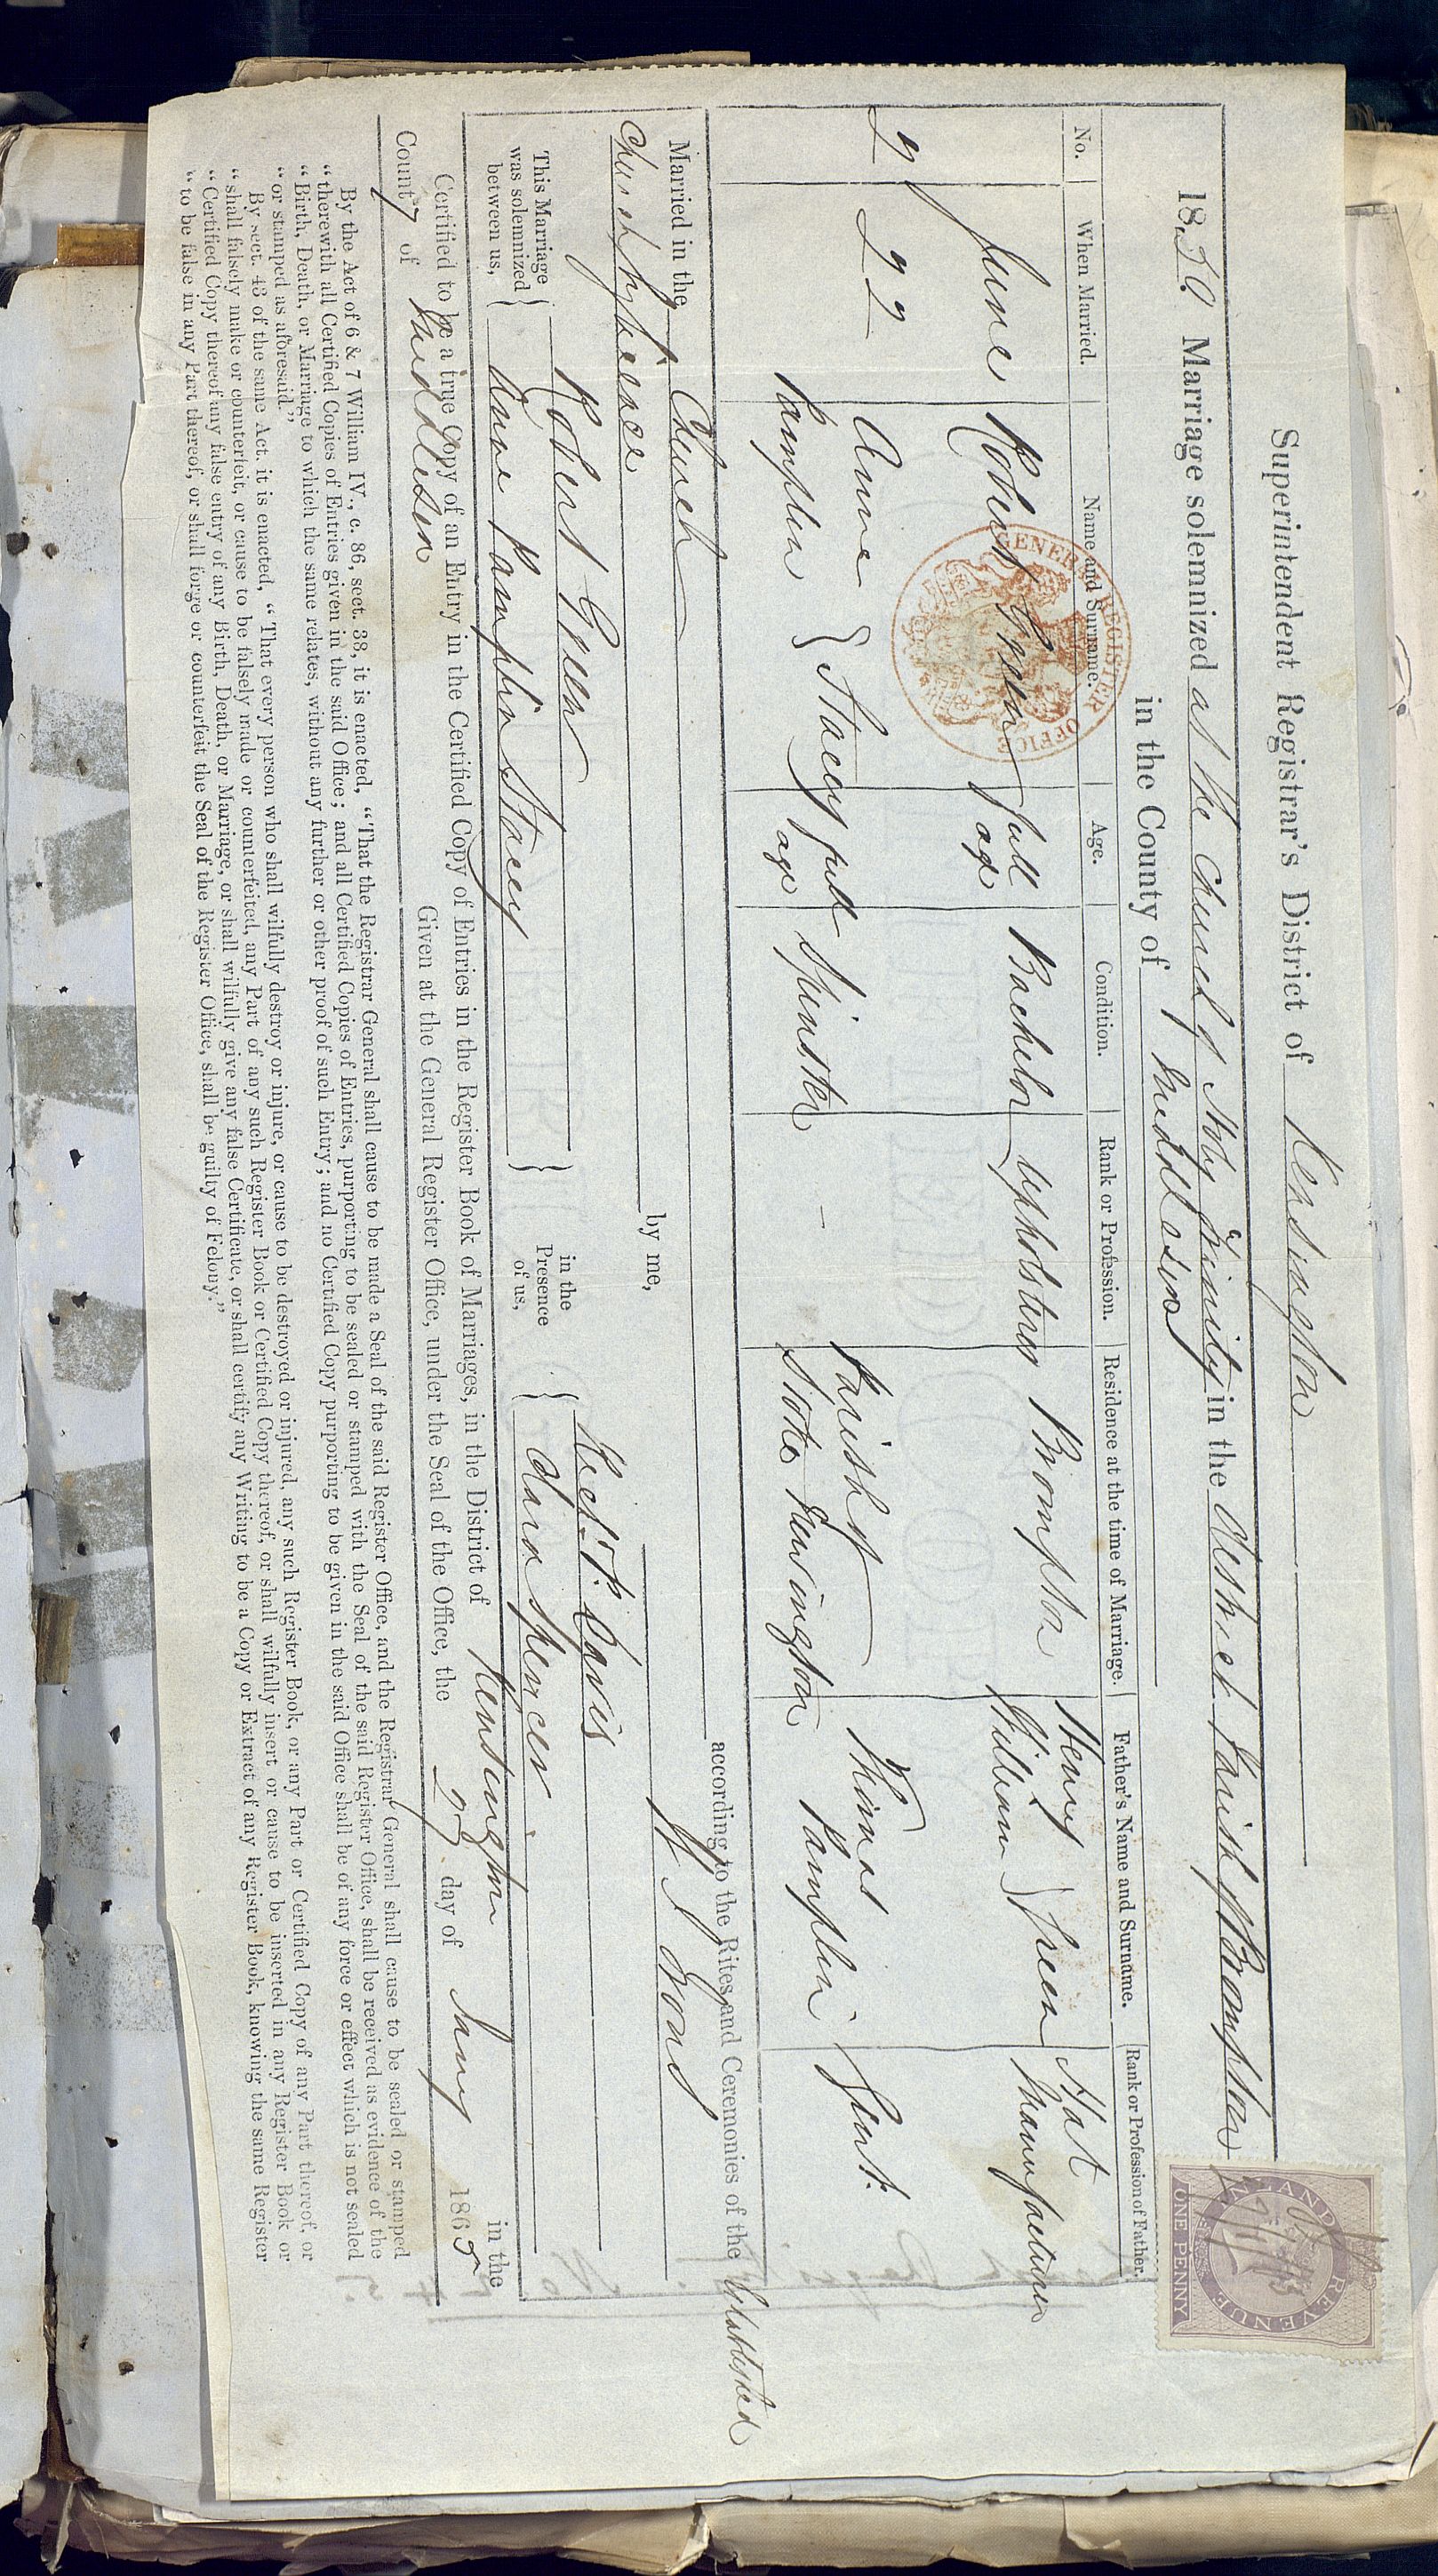 Superintendent Registrar's District of Kensington
Marriage solemnized at the Church of Holy Trinity in the District Parish of Brompton
in the County of Middlesex
No. When Married. Name and Surname. Age. Condition. Rank or Profession. Residence at the time of Marriage. Father's Name and Surname. Rank or Profession of Father.
June Robert Green full age Bachelor Upholsterer Brompton Henry William } Green Hat Manufacturer
Anne Pamplin } Stacey full age Spinster – Parish of Stoke Newington Thomas Pamplin Gent:
Married in the Church according to the Rites and Ceremonies of the Established
Church by licence by me, W J Irons
This Marriage was solemnized between us, { Robert Green } in the Presence of us, { P. Davis
Anne Pamplin Stacey Spencer
Certified to be a true Copy of an Entry in the Certified Copy of Entries in the Register Book of Marriages, in the District of Kensington in the
County of Middlesex Given at the General Register Office, under the Seal of the Office, the 27 day of Jany 1865
By the Act of 6 & 7 William IV., c. 86, sect. 38, it is enacted, "That the Registrar General shall cause to be made a Seal of the said Register Office, and the Registrar General shall cause to be sealed or stamped
"therewith all Certified Copies of Entries given in the said Office; and all Certified Copies of Entries, purporting to be sealed or stamped with the Seal of the said Register Office, shall be received as evidence of the
"Birth, Death, or Marriage to which the same relates, without any further or other proof of such Entry; and no Certified Copy purporting to be given in the said Office shall be of any force or effect which is not sealed
"or stamped as aforesaid."
By sect. 43 of the same Act, it is enacted, "That every person who shall wilfully destroy or injure, or cause to be destroyed or injured, any such Register Book, or any Part or Certified Copy of any Part thereof, or
"shall falsely make or counterfeit, or cause to be falsely made or counterfeited, any Part of any such Register Book or Certified Copy thereof, or shall wilfully insert or cause to be inserted in any Register Book or
"Certified Copy thereof any false entry of any Birth, Death, or Marriage, or shall wilfully give any false Certificate, or shall certify any Writing to be a Copy or Extract of any Register Book, knowing the same Register
"to be false in any Part thereof, or shall forge or counterfeit the Seal of the Register Office, shall be guilty of Felony."
GENERAL REGISTER OFFICE
INLAND REVENUE
ONE PENNY